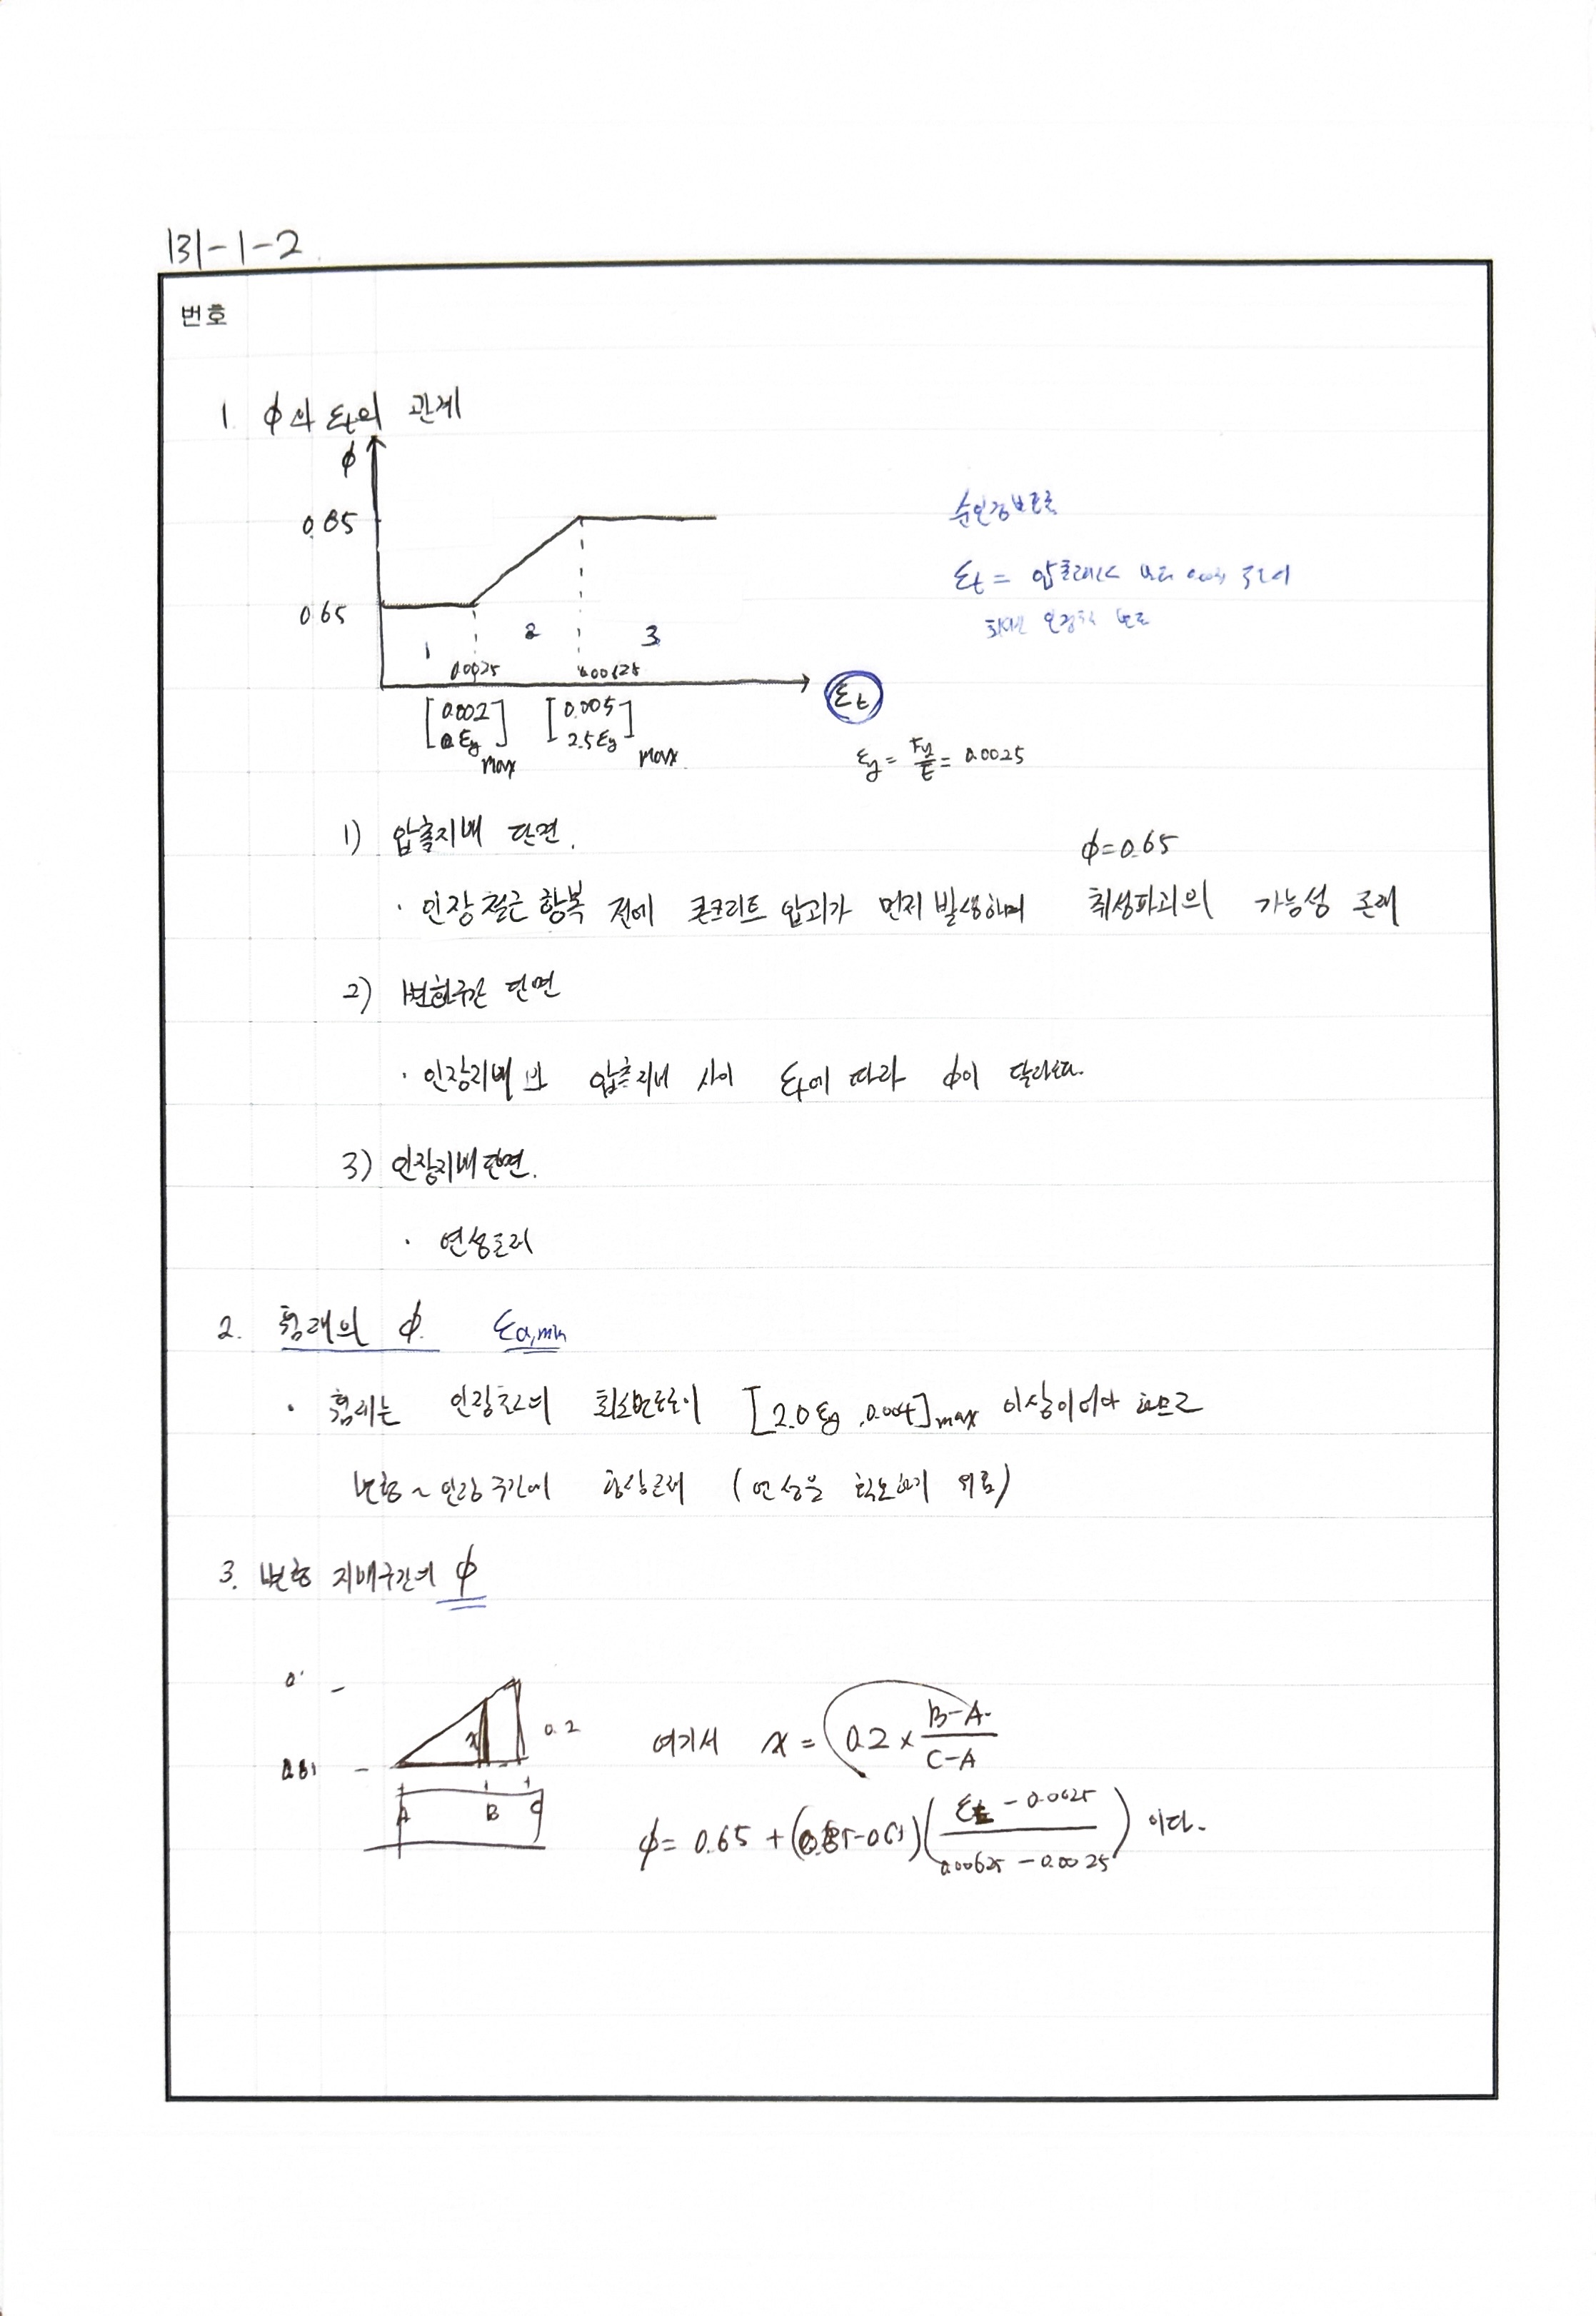 131-1-2
번호
1. ϕ와 εt의 관계
ϕ
0.85
0.65
1 2 3
0.0025 0.00625
[0.002 εy]max [0.005 2.5εy]max
εt
εy = Fy/E = 0.0025
순인장변트률
εt = 압축
최외단 인장측 변트
1) 압축지배 단면.
ϕ=0.65
· 인장철근 항복 전에 콘크리트 압괴가 먼저 발생하며 취성파괴의 가능성 존재
2) 변화구간 단면
· 인장지배 와 압축지배 사이 εt에 따라 ϕ이 달라진다.
3) 인장지배단면.
· 연성
2. 휨재의 ϕ. εa,min
· 휨재는 인장철근의 최소변트률이 [2.0εy, 0.004]max 이상이어야 하므로
변화~인장 구간에 항상존재 (연성을 확보하기 위함)
3. 변화 지배구간의 ϕ
0.2
x
A B C
여기서 x = 0.2 × (B-A)/(C-A)
ϕ = 0.65 + (0.85-0.65)((εt - 0.0025)/(0.00625 - 0.0025)) 이다.